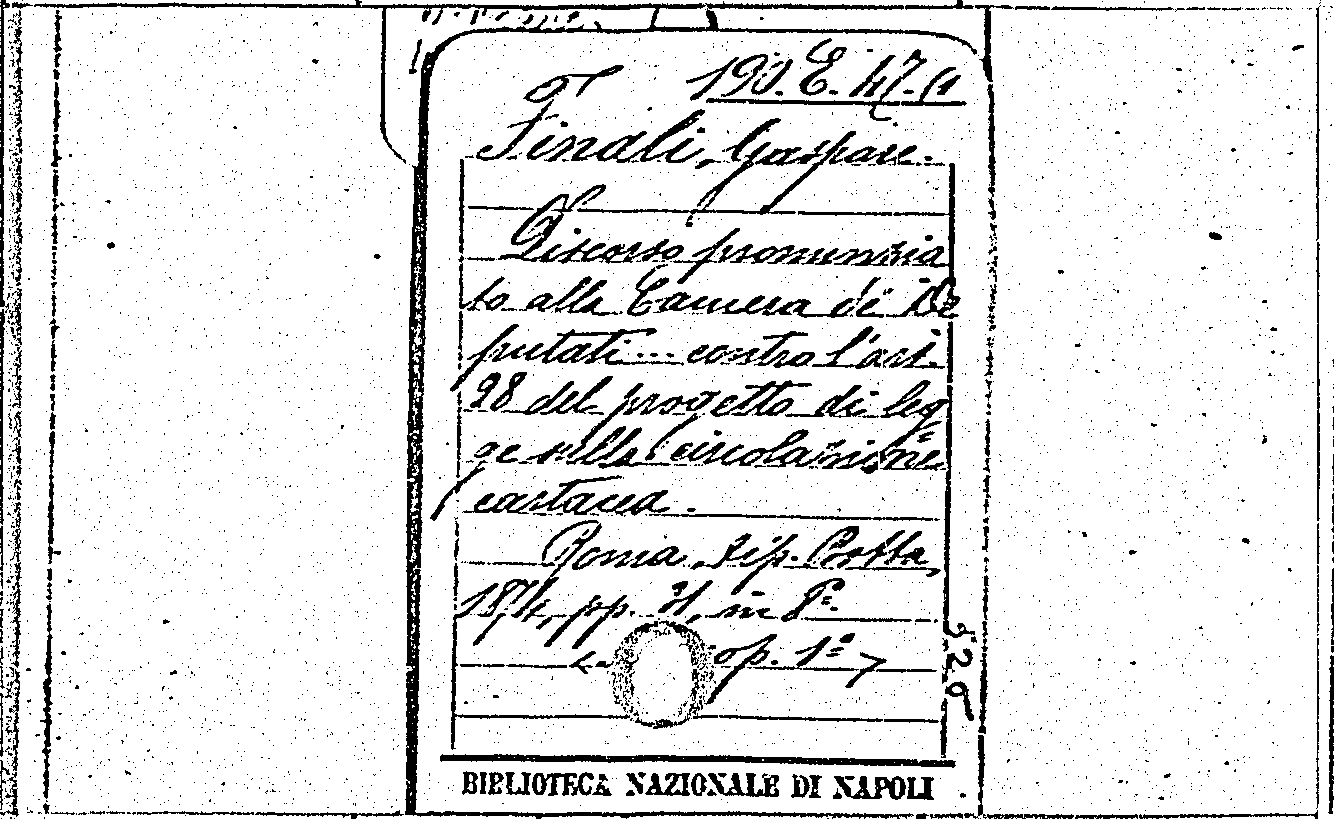 190. E. 47. (1
Finali, Gaspare.
Discorso pronunzia
to alla Camera di De
putati ... contro l'art.
28 del progetto di leg
ge sulla circolazione
cartacea.
Roma, tip. Botta,
1874, pp. 31, in 8º.
op. 1ª
520
BIBLIOTECA NAZIONALE DI NAPOLI